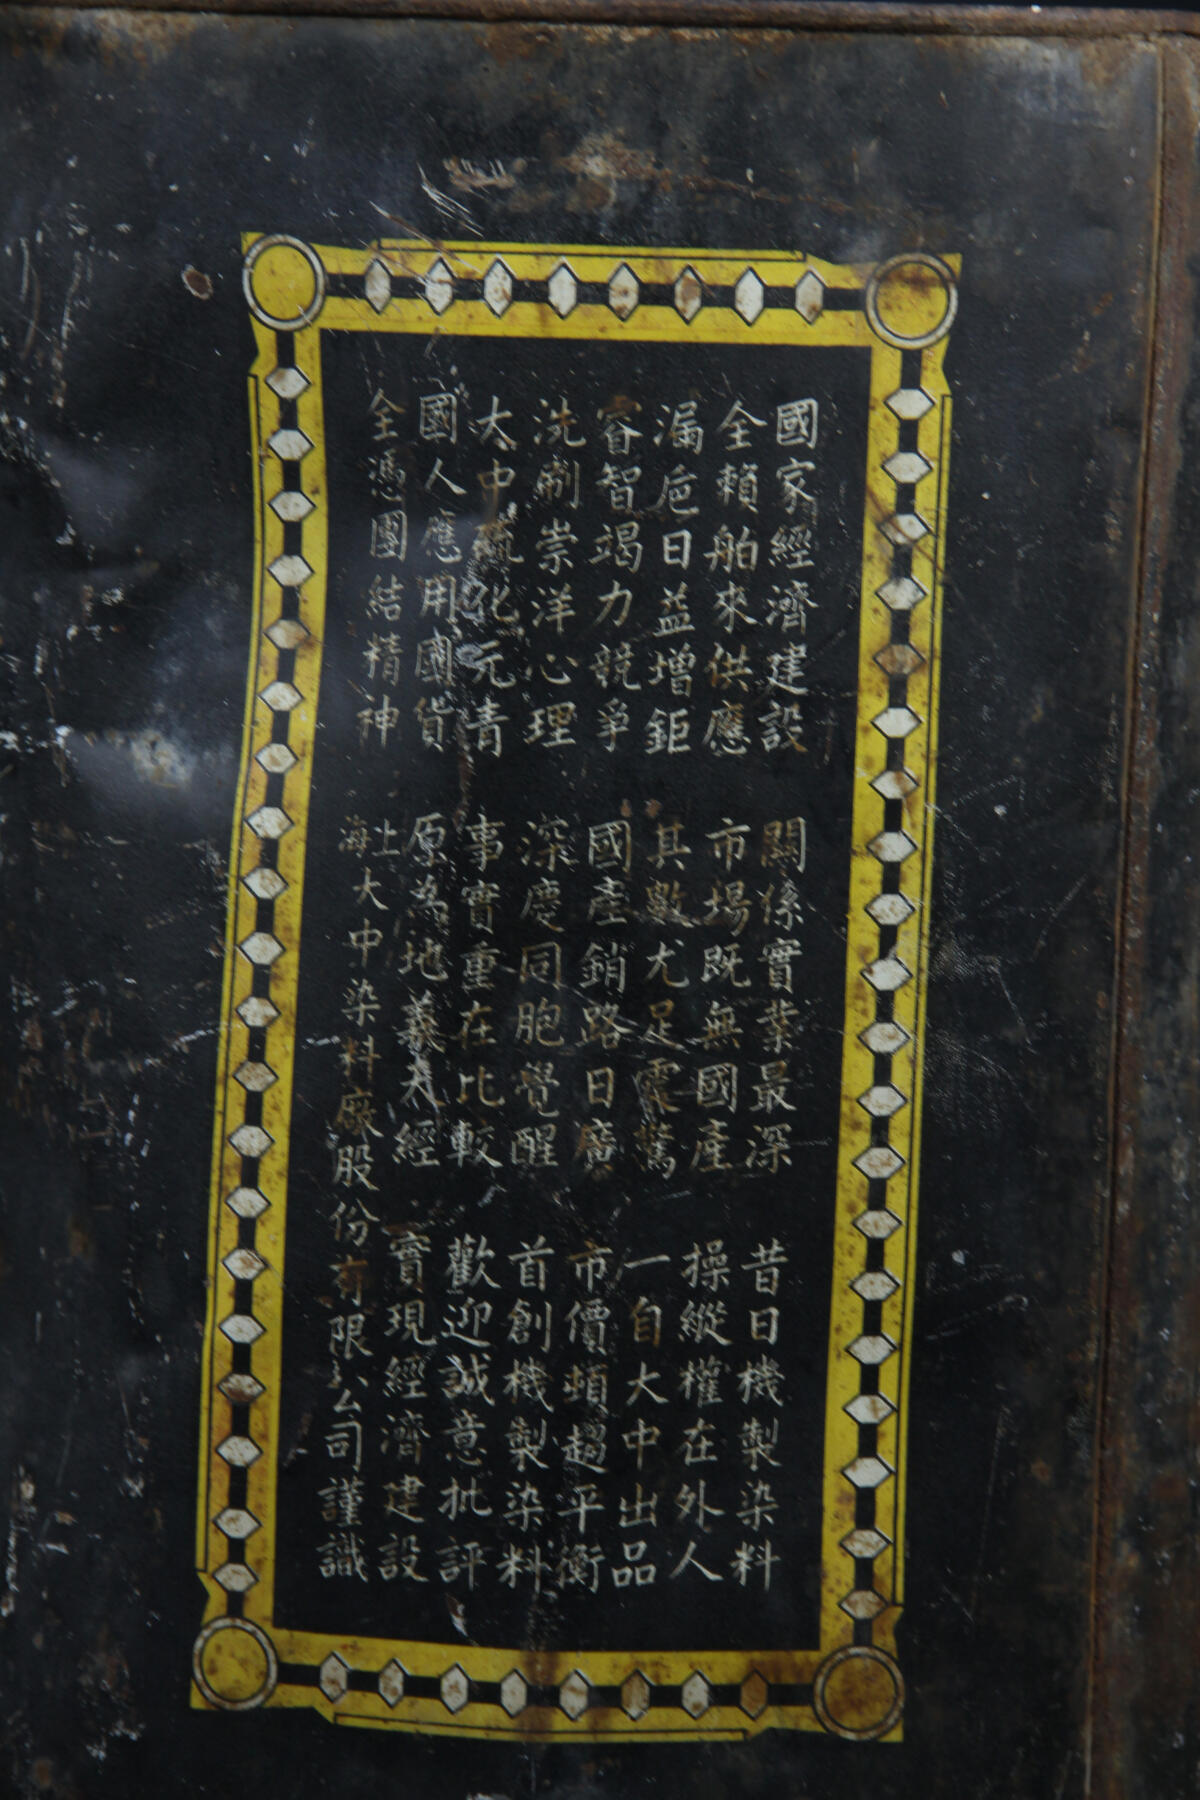 國家經濟建設 關係實業最深 昔日機製染料
全賴舶來供應 市場既無國產 操縱權在外人
漏巵日益增鉅 其數尤足震驚 一自大中出品
睿智竭力競爭 國產銷路日廣 市價頓趨平衡
洗刷崇洋心理 深慶同胞覺醒 首創機製染料
大中硫化元青 事實重在比較 歡迎誠意批評
國人應用國貨 原為地義天經 實現經濟建設
全憑團結精神
上海大中染料廠股份有限公司謹識